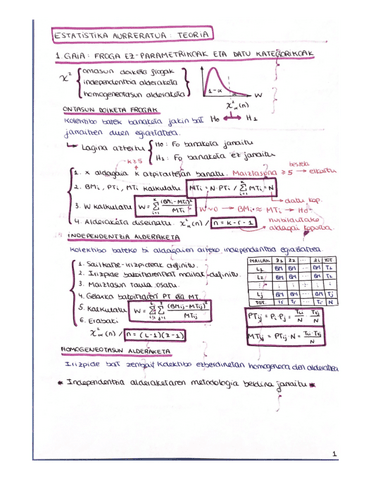 ESTATISTIKA AURRERATUA: TEORIA
1. GAIA: FROGA EZ-PARAMETRIKOAK ETA DATU KATEGORIKOAK
χ² ontasun doiketa frogak
independentzia alderaketa
homogeneotasun alderaketa
1-α
W
χ²α(n)
ONTASUN DOIKETA FROGAK
Kolektibo batek banaketa jakin bat H₀ ↔ H₁
jarraitzen duen egiaztatzea.
→ Lagina aztertu H₀: F₀ banaketa jarraitu
H₁: F₀ banaketa ez jarraitu
k≥5
1. X aldagaia K azpitartetan banatu. Maiztasuna ≥ 5 → elkartu
2. BMi, PTi, MTi kalkulatu MTi = N·PTi / ΣMTi = N
3. W kalkulatu W = Σ (BMi-MTi)² / MTi W≈0 → BMi ≈ MTi → H₀
4. Alderaketa diseinatu χ²α(n) / n = k-r-1
INDEPENDENTZIA ALDERAKETA
Kolektibo bateko bi aldagaien arteko independentzia egiaztatzea.
1. Sailkatze-irizpideak definitu.
2. Irizpide bakoitzarentzat mailak definitu.
3. Maiztasun taula osatu
4. Gelaxka bakoitzari PT eta MT
5. Kalkulatu W = ΣΣ (BMij-MTij)² / MTij
6. Erabaki
χ²α(n) / n = (L-1)(Z-1)
MAILAK Z1 Z2 ... Zi TOT
L1 BM BM ... BM T1
L2 BM BM ... BM T2
Lj BM BM ... BM Tj
TOT T1 T2 ... Ti N
PTij = Pi·Pj = Ti/N · Tj/N
MTij = PTij·N = Ti·Tj / N
HOMOGENEOTASUN ALDERAKETA
Irizpide bat zenbait kolektibo ezberdinetan homogeneoa den alderatzea
* Independentzia alderaketaren metodologia berdina jarraitu *
1